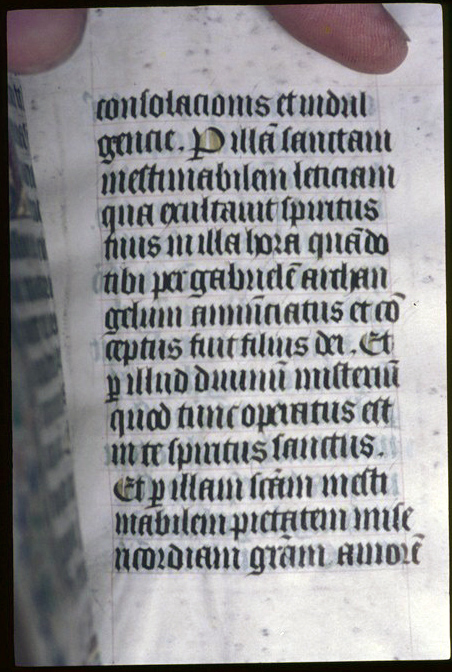 consolacionis et indul
gencie. P illā sanctam
inestimabilem leticiam
qua exultauit spiritus
tuus in illa hora quādo
tibi per gabrielē archan
gelum annūciatus et cō
ceptus fuit filius dei. Et
p illud diuinū misteriū
quod tunc operatus est
in te spiritus sanctus.
Et p illam scām inesti
mabilem pietatem mise
ricordiam grām amorē